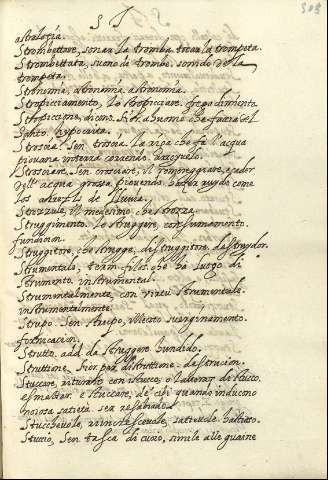 S T
astrologia.
Strombettare, sonar la tromba tocar la trompeta.
Strombettata, suono de trombe. sonido de la
trompeta.
Stronomia, astronomia. astronomia.
Stropicciamento, lo stropicciare. frega di miento.
Stropiccione, dicono. Fior. a buomo che fa era del
santo. hypocrita.
Stroscia. Sen. troscia. la riga che fa l'acqua
piovana in terra correndo. arroyuelo.
Strosciare, Sen. crosciare, il romoreggiare, e cader
dell' acqua grossa piovendo. hazer ruydo como
los de lluvia.
Strozzule, il medesimo che strozza.
Struggimento, lo struggere, consumamento.
fundicion.
Struggitore, che strugge, distruggitore. destruydor.
Strumentale, term. filos. che ha luogo di
strumento. instrumental.
Strumentalmente, con virtù strumentale.
instrumentalmente.
Strupo. Sen. stupro, illecito sverginamento.
fornicacion.
Strutto. add. da struggere. hundido.
Struttione. Fior. per distruttione. destrucion.
Stuccare, riturare con stucco, o lavorar di stucco.
esmaltar. e stuccare, de' cibi quando inducono
noiosa satietà. ser resabiado.
Stucchevole, rincrescevole, satievole. hastioso.
Stuccio, Sen. tasca di cuoio, simile alle guaine